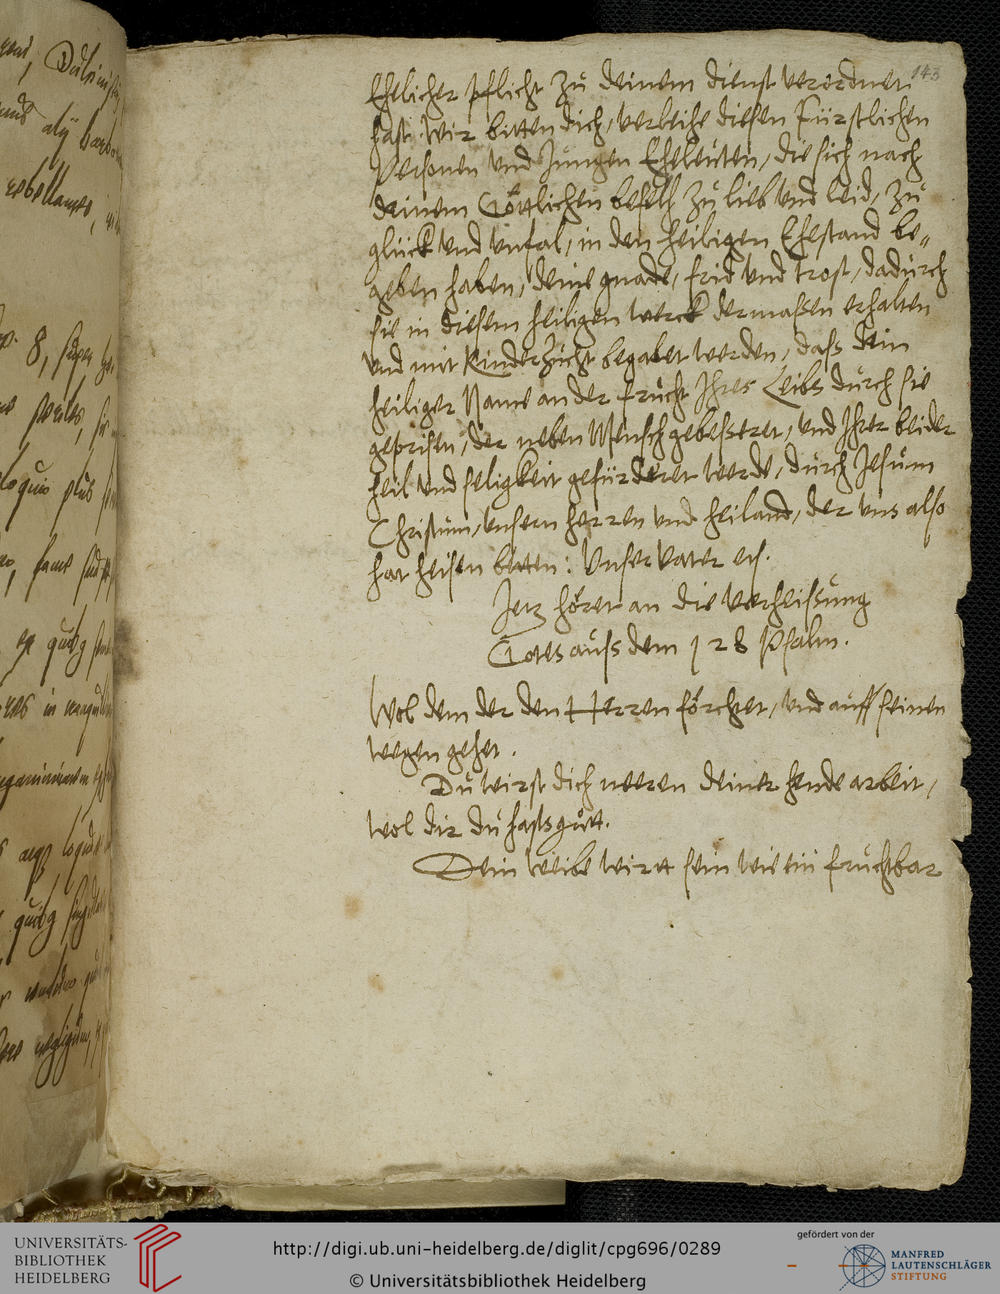 143
Ehelicher pflicht zů deinem dienst verordnet
hast. Wir bitten dich, verleihe diesen Fürstlichen
Personen vnd Jungen Eheleüten, die sich nach
deinem Göttlichen befelh zů lieb vnd leid, zů
glück vnd vnfal, in den heiligen Ehestand be„
geben haben, deine gnade, frid vnd trost, dadurch
sie in diesem heiligen werck dermaßen erhalten
vnd mit Kinderzucht begabet werden, dass dein
heiliger Name an der frucht Ihres Leibs durch sie
geprisen, der neben Mensch gebesseret, vnd Ihrer beider
heil vnd seligkeit gefürderet werde, durch Jesum
Christum, vnsern herren vnd heiland, der vns also
hat heisen bitten: Vnser Vater etc.
Jetz höret an die verheissung
Gotes auss dem 128 Psalm.
Wol dem der den Herren förchtet, vnd auff seinen
wegen gehet.
Du wirst dich neeren deiner hende arbeit,
wol dir du hasts gůtt.
Dein Weibe wirtt sein wie ein fruchtbar
UNIVERSITÄTS-
BIBLIOTHEK
HEIDELBERG
http://digi.ub.uni-heidelberg.de/diglit/cpg696/0289
© Universitätsbibliothek Heidelberg
gefördert von der
MANFRED
LAUTENSCHLÄGER
STIFTUNG